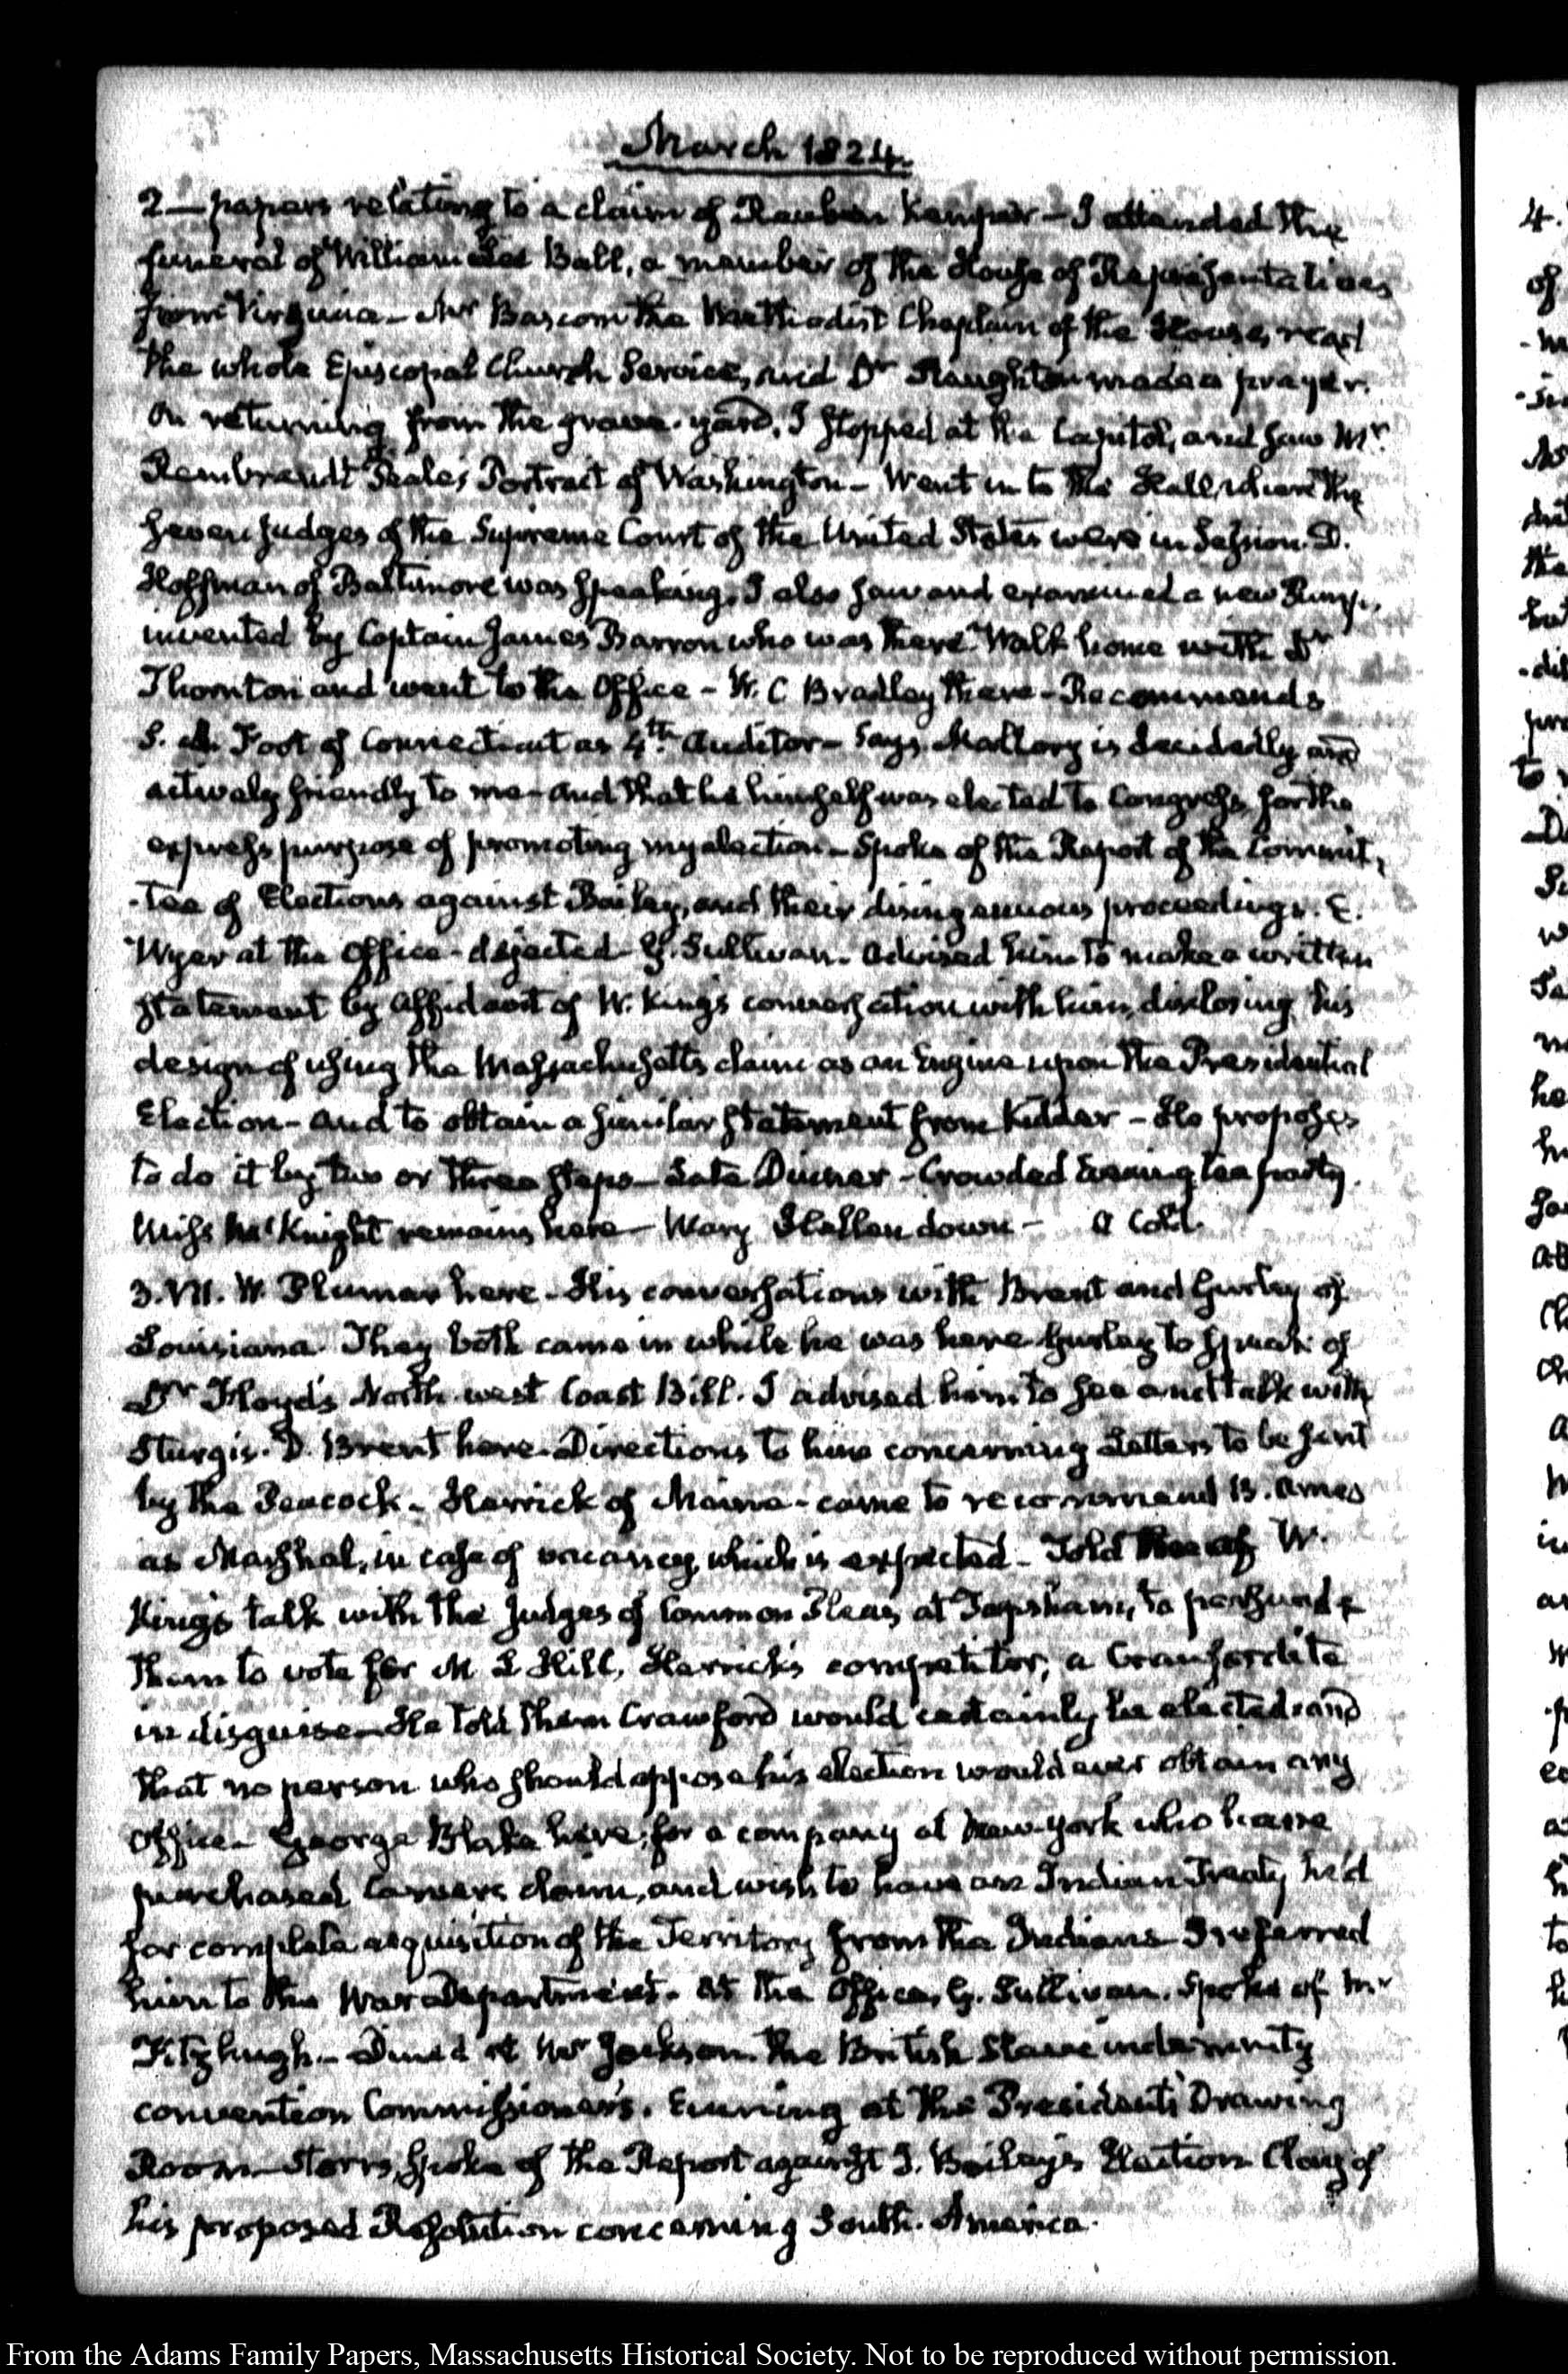 March 1824.
2— papers relating to a claim of Reuben Kemper — I attended the
funeral of William Lee Ball, a member of the House of Representatives
from Virginia — Mr Bascom the Methodist Chaplain of the House, read
the whole Episcopal Church Service, and Dr Staughton made a prayer.
On returning from the grave-yard, I stopped at the Capitol, and saw Mr.
Rembrandt Peale's Portrait of Washington — Went in to the Hall where the
seven judges of the Supreme Court of the United States were in Session. D.
Hoffman of Baltimore was speaking. I also saw and examined a new Pump,
invented by Captain James Barron who was there. Walk home with Dr
Thornton and went to the Office — W. C Bradley there — Recommends
S. A. Foot of Connecticut as 4th. Auditor — Says Mallory is decidedly and
actively friendly to me — and that he himself was elected to Congress for the
express purpose of promoting my election — Spoke of the Report of the Commit,
-tee of Elections against Bailey, and their disingenuous proceedings. E.
Wyer at the Office — dejected — G. Sullivan. Advised him to make a written
statement by affidavit of W. King's conversation with him, disclosing his
design of using the Massachusetts claim as an Engine upon the Presidential
Election — and to obtain a similar statement from Kidder — He proposes
to do it by two or three steps — Late Dinner — Crowded Evening tea party.
Miss McKnight remains here — Mary Hellen down — A Cold.
3. VII. W. Plumer here — His conversations with Brent and Gurley of
Louisiana. They both came in while he was here — Gurley to speak of
Dr Floyd's North-west Coast Bill. I advised him to see and talk with
Sturgis. D. Brent here — Directions to him concerning Letters to be sent
by the Peacock — Herrick of Maine — came to recommend B. Ames
as Marshal, in case of vacancy, which is expected — Told W.
King's talk with the Judges of Common Pleas, at Topsham, to persuade
them to vote for M L Hill, Herrick's competitor, a Crawfordite
in disguise — He told them Crawford would certainly be elected, and
that no person who should oppose his election would ever obtain any
Office — George Blake here, for a company at New-York who have
purchased Carver's claim, and wish to have an Indian Treaty he'd
for complete acquisition of the Territory from the Indians — I referred
him to the War Department. At the Office, G. Sullivan. Spoke of Mr
Fitzhugh — Dined at Mr Jackson the British Slave indemnity
convention Commissioner's. Evening at the President's Drawing
Room — Storrs, spoke of the Report against J. Bailey's Election — Clay of
his proposed Resolution concerning South-America.
4.
From the Adams Family Papers, Massachusetts Historical Society. Not to be reproduced without permission.